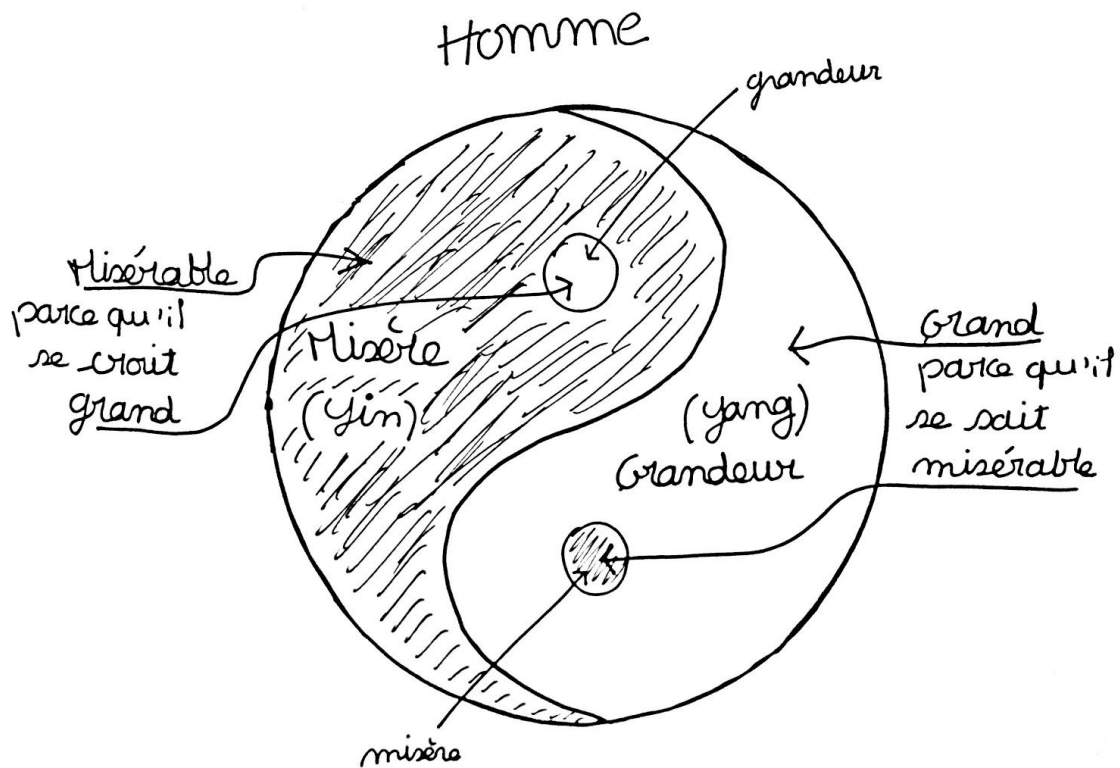 Homme
grandeur
Misérable
parce qu'il
se croit
grand
Misère
(Yin)
(Yang)
Grandeur
Grand
parce qu'il
se sait
misérable
misère